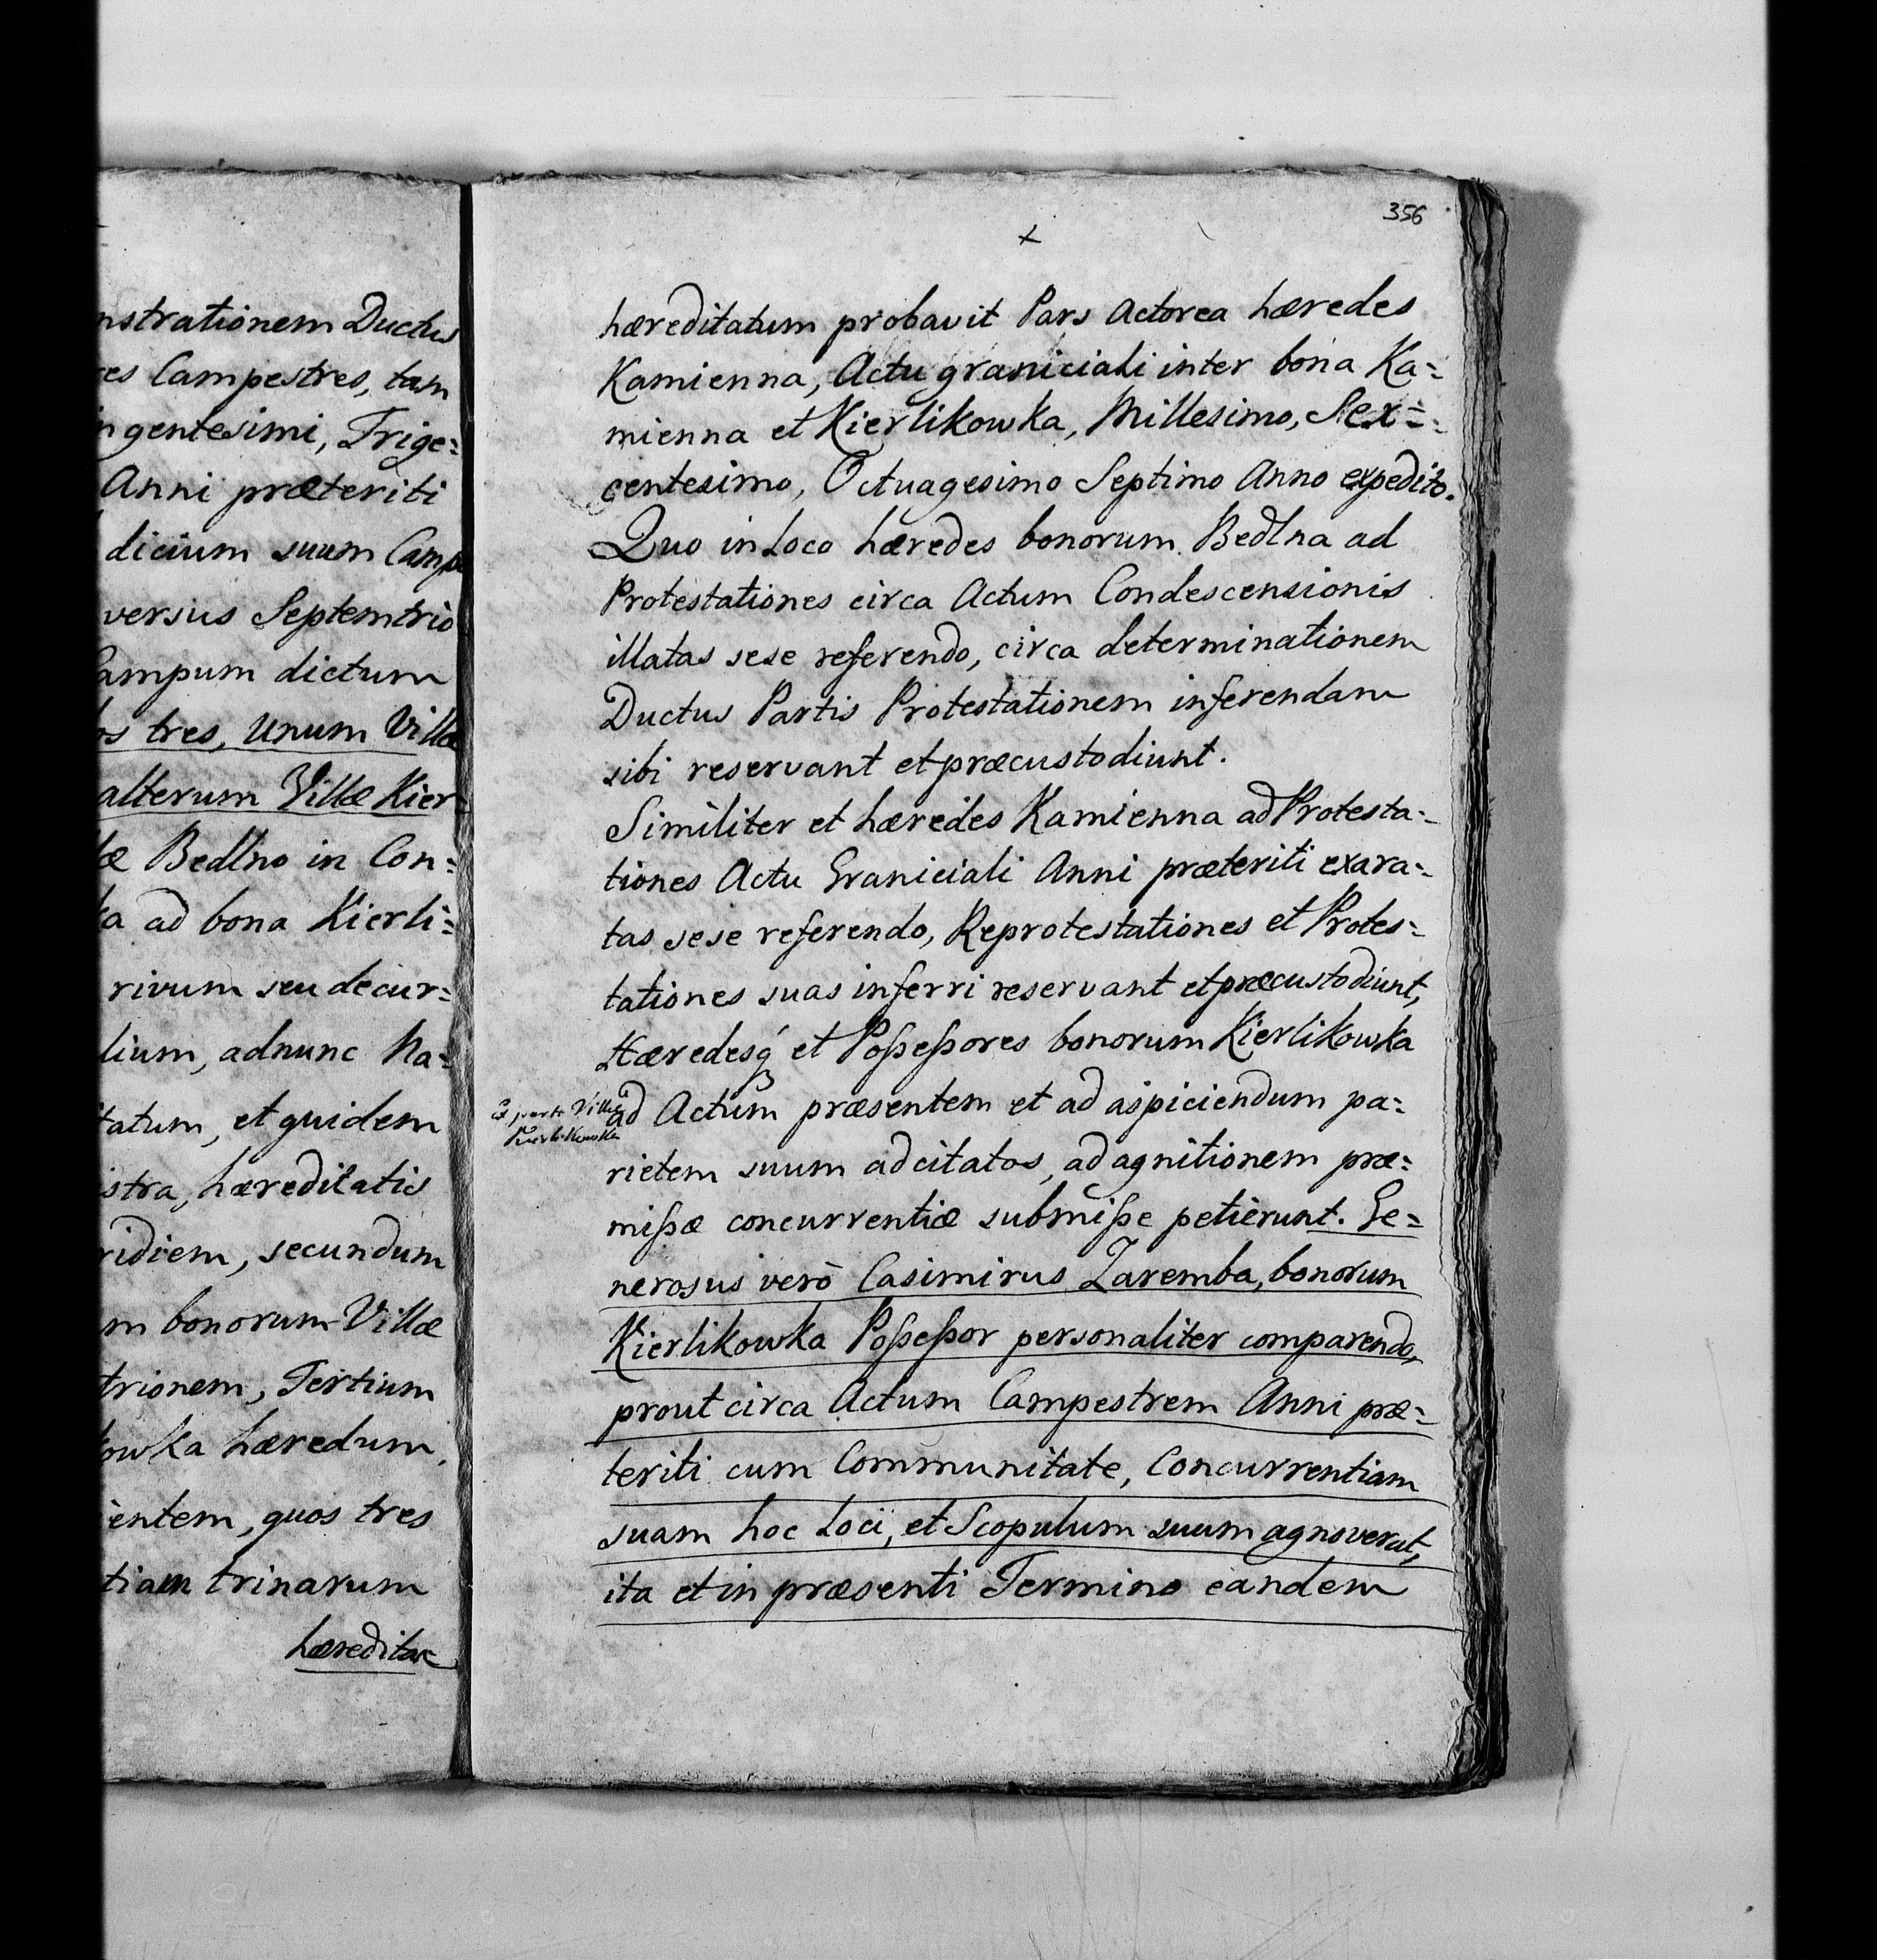 nstrationem Ductus
es Campestres, tam
ngentesimi, Trige=
Anni præteriti
dicium suum Camp
versus Septemtrio
ampum dictum
os tres, unum Villæ
alterum Villæ Kier
æ Bedlno in Con=
ka ad bona Kierli=
rivum seu decur=
lium, adnunc Na=
tatum, et quidem
istra, hæreditatis
ridiem, secundum
m bonorum Villæ
trionem, Tertium
kowka hæredum,
entem, quos tres
tiam trinarum
hæredita
356
x
hæreditatum probavit Pars Actorea hæredes
Kamienna, Actu graniciali inter bona Ka=
mienna et Kierlikowka, Millesimo, Sex=
centesimo, Octuagesimo Septimo Anno expedito.
Quo in Loco hæredes bonorum Bedlna ad
Protestationes circa Actum Condescensionis
illatas sese referendo, circa determinationem
Ductus Partis Protestationem inferendam
sibi reservant et præcustodiunt.
Similiter et hæredes Kamienna ad Protesta=
tiones Actu Graniciali Anni præteriti exara=
tas sese referendo, Reprotestationes et Protes=
tationes suas inferri reservant et præcustodiunt,
Hæredesq́ et Poßeßores bonorum Kierlikowka
Ex parte Villæ
Kierlikowka
ad Actum præsentem et ad aspiciendum pa=
rietem suum adcitatos, ad agnitionem præ=
mißæ concurrentiæ submiße petierunt. Ge=
nerosus verò Casimirus Zaremba, bonorum
Kierlikowka Poßeßor personaliter comparendo,
prout circa Actum Campestrem Anni præ=
teriti cum Communitate, Concurrentiam
suam hoc Loci, et Scopulum suum agnoverat,
ita et in præsenti Termino eandem